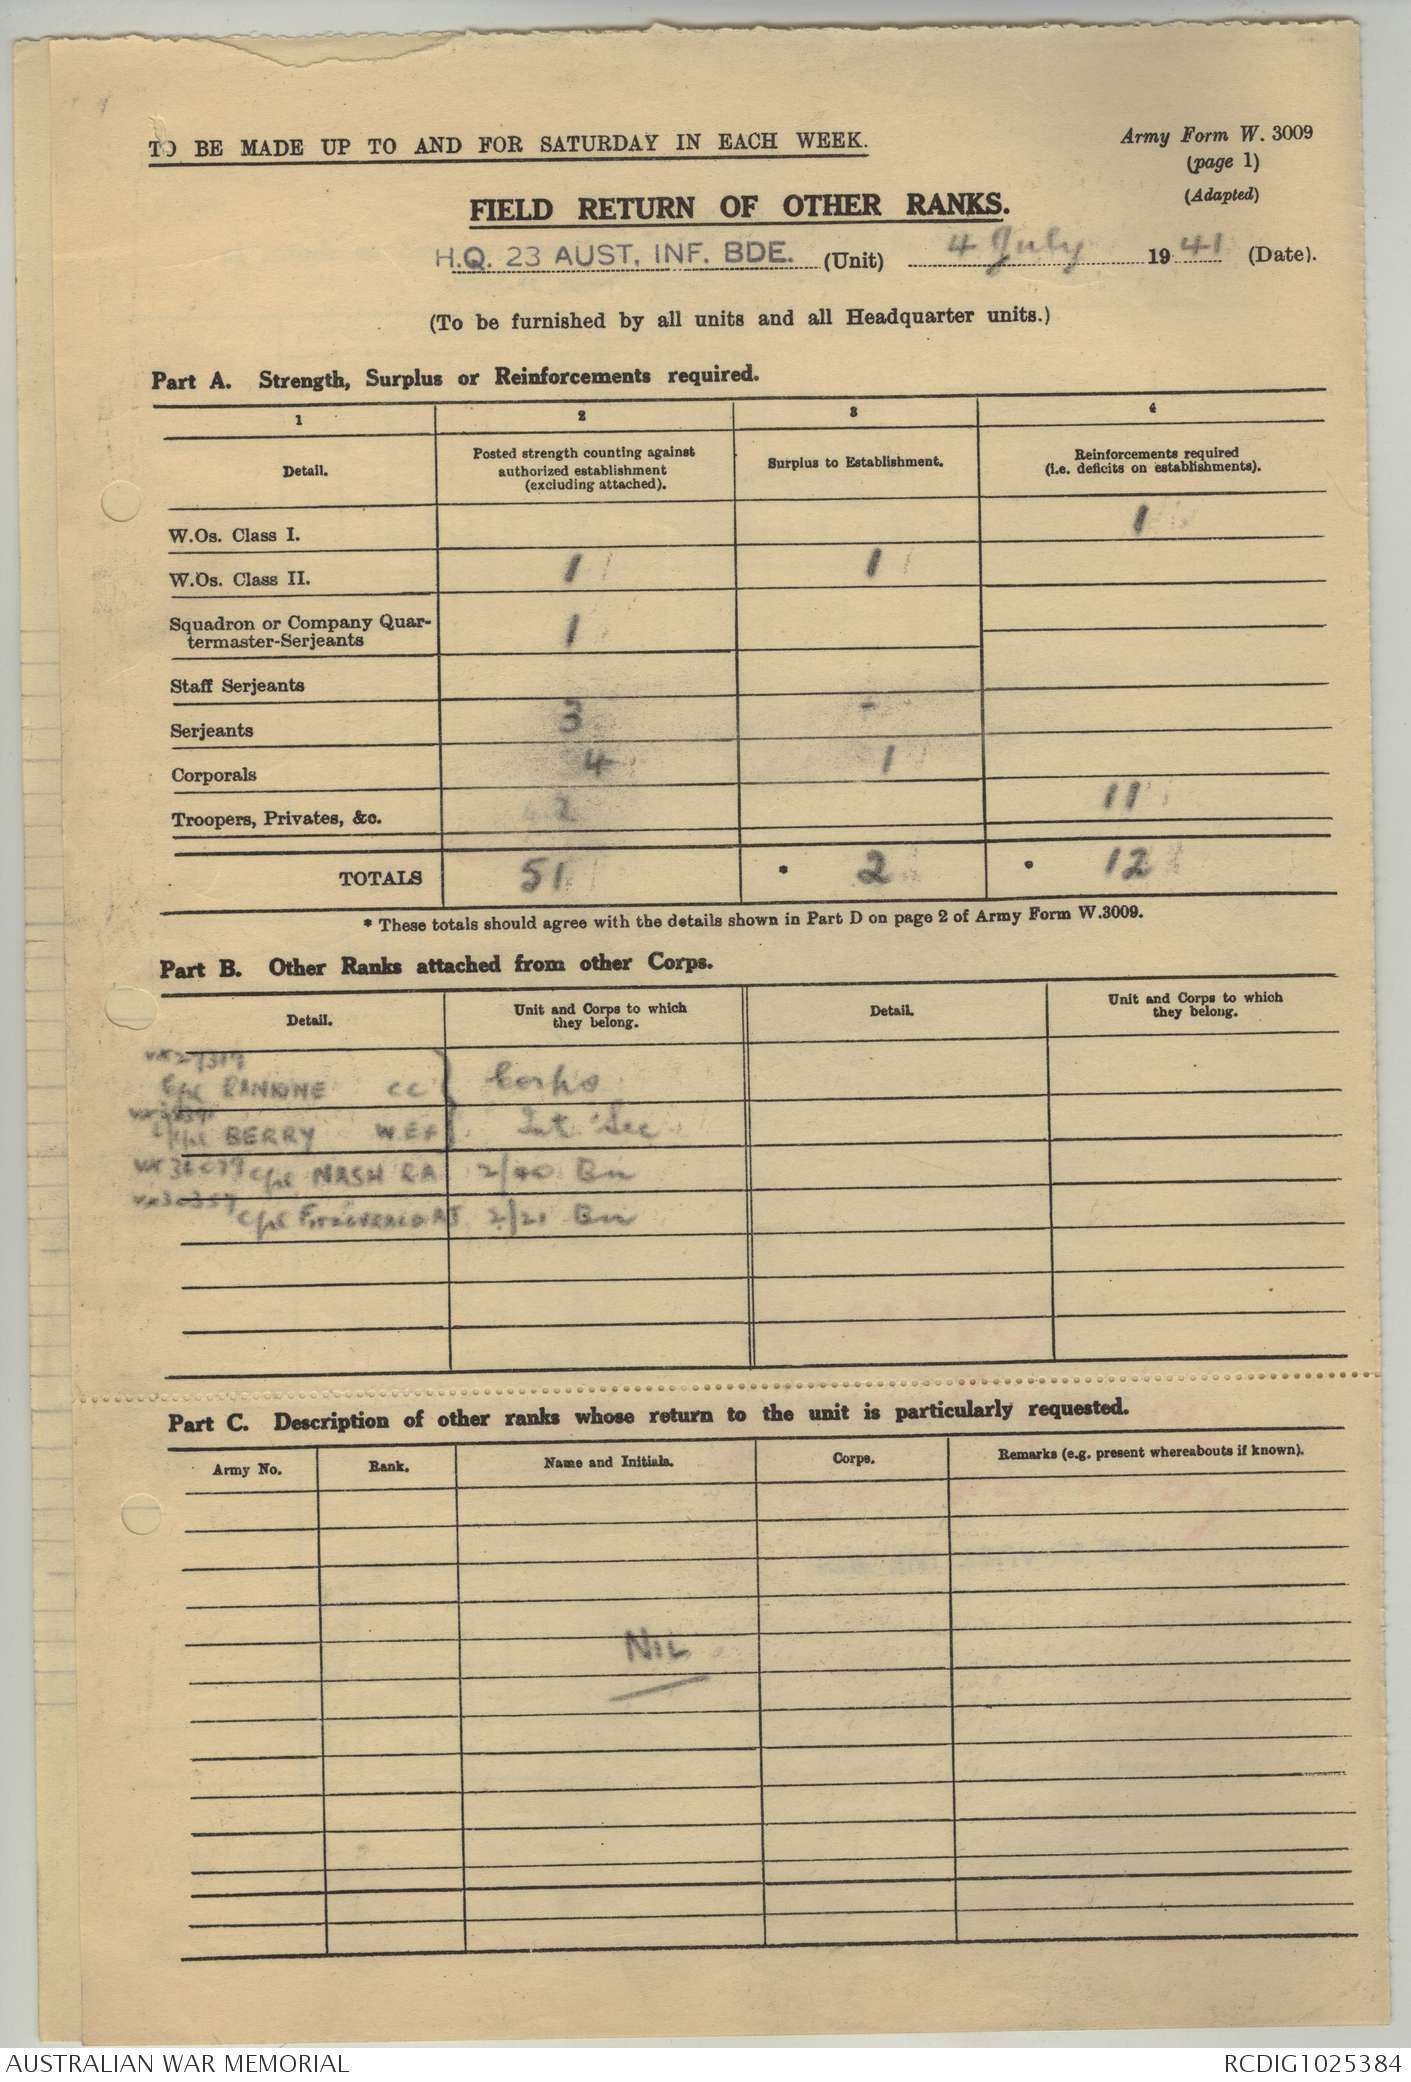 TO BE MADE UP TO AND FOR SATURDAY IN EACH WEEK.
Army Form W. 3009
(page 1)
(Adapted)
FIELD RETURN OF OTHER RANKS.
H.Q. 23 AUST. INF. BDE. (Unit) 4 July 1941 (Date).
(To be furnished by all units and all Headquarter units.)
Part A. Strength, Surplus or Reinforcements required.
1 2 3 4
Detail.
Posted strength counting against
authorized establishment
(excluding attached).
Surplus to Establishment.
Reinforcements required
(i.e. deficits on establishments).
W.Os. Class I. 1
W.Os. Class II. 1 1
Squadron or Company Quar-
termaster-Serjeants 1
Staff Serjeants
Serjeants 3 -
Corporals 4 1
Troopers, Privates, &c. 42 11
TOTALS 51 * 2 * 12
* These totals should agree with the details shown in Part D on page 2 of Army Form W.3009.
Part B. Other Ranks attached from other Corps.
Detail.
Unit and Corps to which
they belong.
Detail.
Unit and Corps to which
they belong.
Cpl RANKINE CC } Corps
BERRY W.E.F } Int Sec
Cpl NASH R A 2/40 Bn
Cpl 2/21 Bn
Part C. Description of other ranks whose return to the unit is particularly requested.
Army No. Rank. Name and Initials. Corps. Remarks (e.g. present whereabouts if known).
NIL
AUSTRALIAN WAR MEMORIAL
RCDIG1025384